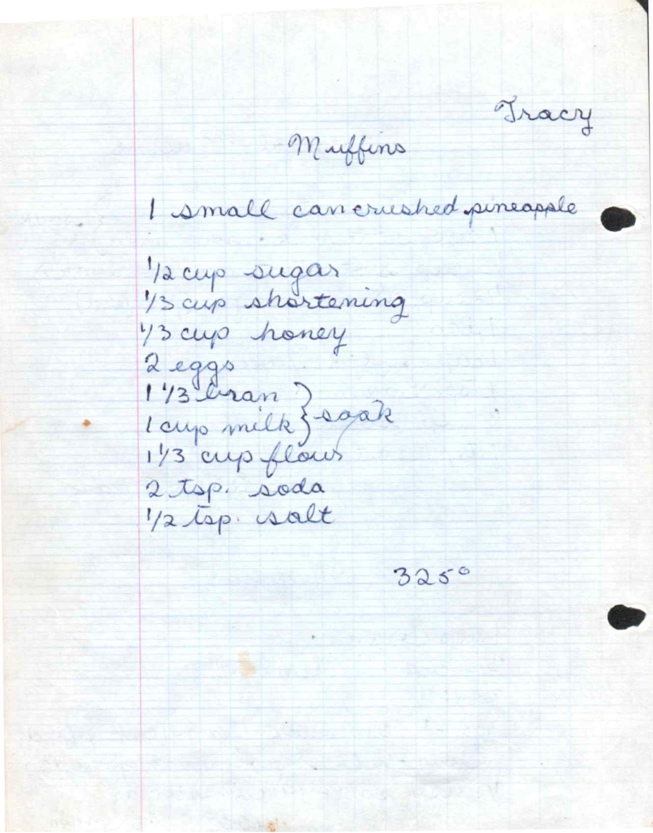 Tracy
Muffins
1 small can crushed pineapple
1/2 cup sugar
1/3 cup shortening
1/3 cup honey
2 eggs
1 1/3 bran
1 cup milk } soak
1 1/3 cup flour
2 tsp. soda
1/2 tsp. salt
325°